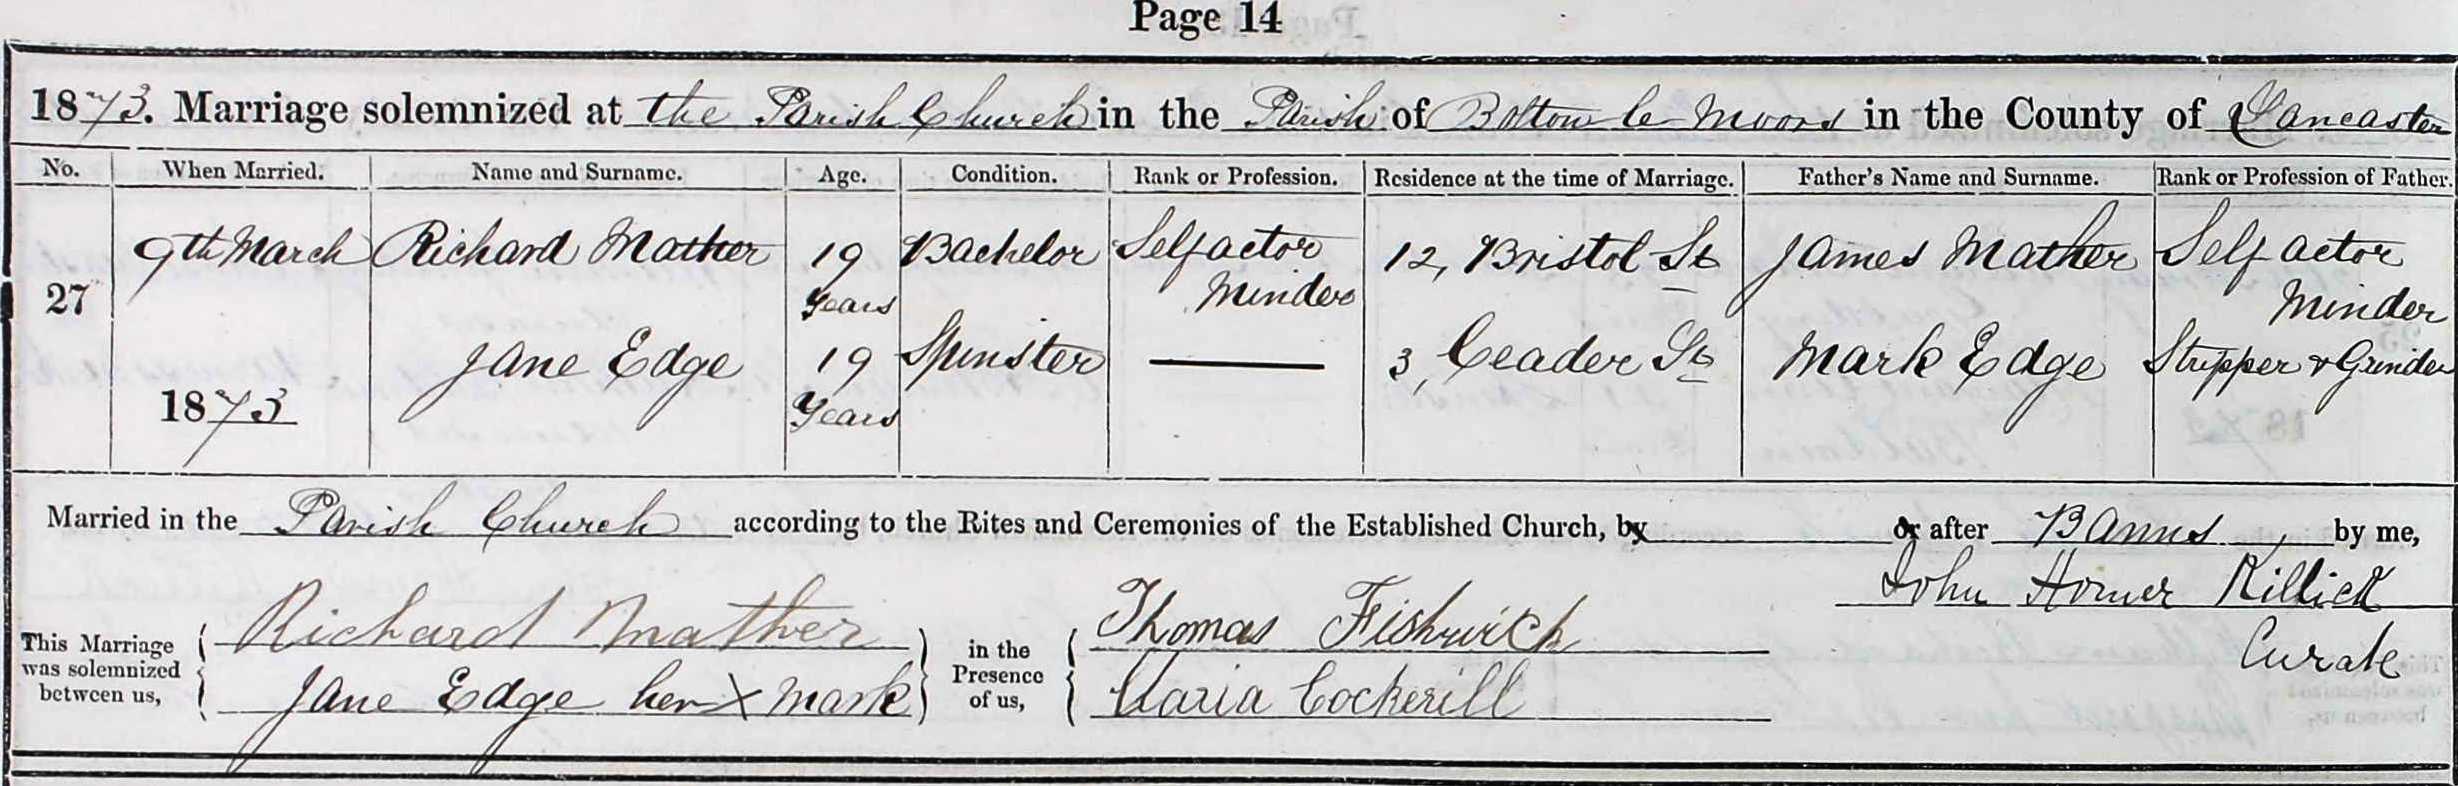 Page 14
1873. Marriage solemnized at the Parish Church in the Parish of Bolton le Moors in the County of Lancaster
No. When Married. Name and Surname. Age. Condition. Rank or Profession. Residence at the time of Marriage. Father's Name and Surname. Rank or Profession of Father.
9th March Richard Mather 19 Years Bachelor Selfactor Minder 12, Bristol St James Mather Self actor Minder
27
1873 Jane Edge 19 Years Spinster 3, Ceader St Mark Edge Stripper & Grinder
Married in the Parish Church according to the Rites and Ceremonies of the Established Church, by or after Banns, by me,
John Horner Killick
Curate
This Marriage was solemnized between us, Richard Mather
Jane Edge her X mark
in the Presence of us, Thomas Fishwick
Maria Cockerill